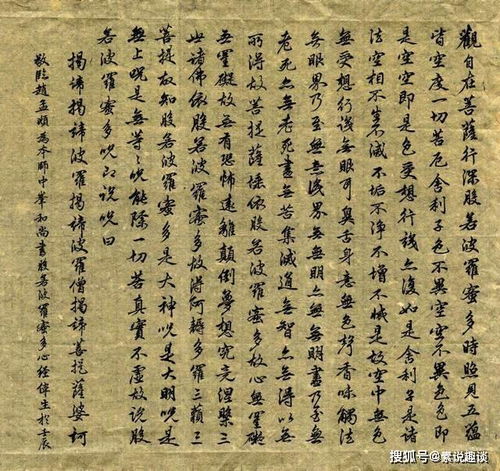 觀自在菩薩行深般若波羅蜜多時照見五蘊
皆空度一切苦厄舍利子色不異空空不異色色即
是空空即是色受想行識亦復如是舍利子是諸
法空相不生不滅不垢不淨不增不減是故空中無色
無受想行識無眼耳鼻舌身意無色聲香味觸法
無眼界乃至無意識界無無明亦無無明盡乃至無
老死亦無老死盡無苦集滅道無智亦無得以無
所得故菩提薩埵依般若波羅蜜多故心無罣礙
無罣礙故無有恐怖遠離顛倒夢想究竟涅槃三
世諸佛依般若波羅蜜多故得阿耨多羅三藐三
菩提故知般若波羅蜜多是大神咒是大明咒是
無上咒是無等等咒能除一切苦真實不虛故說般
若波羅蜜多咒即說咒曰
揭諦揭諦波羅揭諦波羅僧揭諦菩提薩婆訶
敬臨趙孟頫為本師中峯和尚書般若波羅蜜多心經於壬辰
搜狐号@素说趣谈